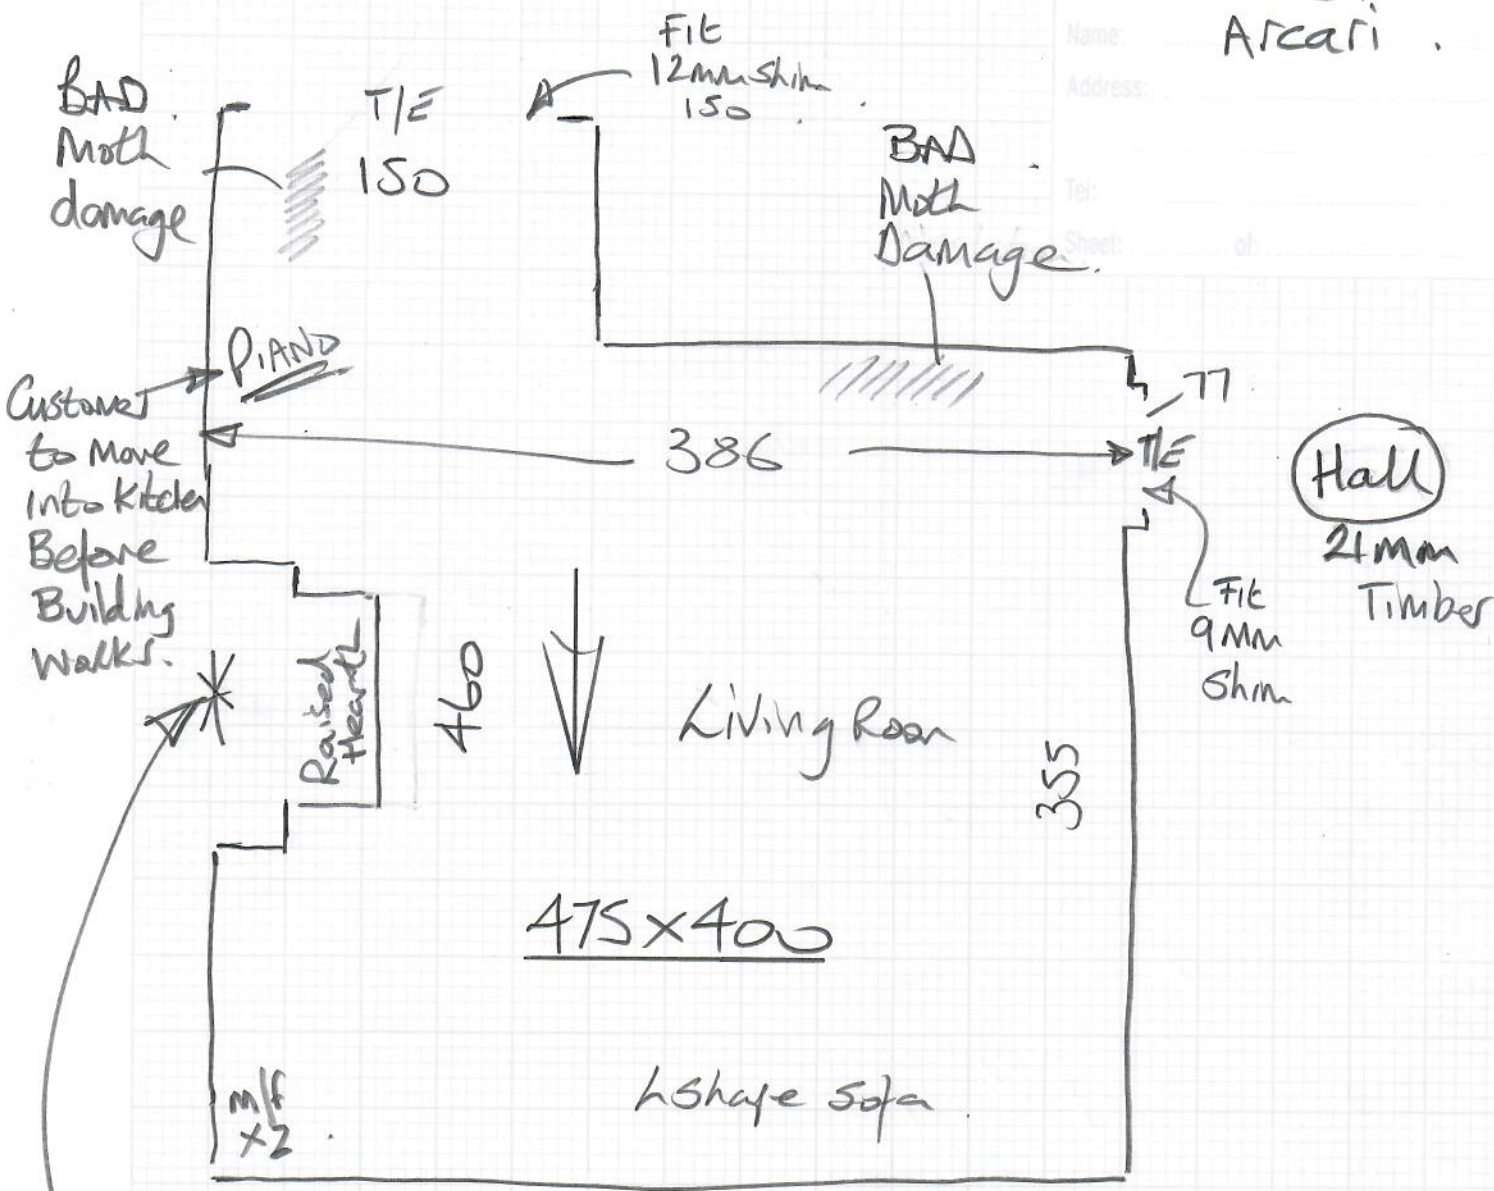 Name:
Arcari .
Address:
Tel:
Sheet: of:
Fit
12mm shim
150 .
BAD
Moth
damage
T/E
150
BAD
Moth
Damage.
PIANO
Customer
to Move
Into Kitchen
Before
Building
Works.
386
77
T/E
Hall
21mm
Timber
Fit
9mm
Shim
Raised
Hearth
460
Living Room
355
475x400
m/f
x2 .
L shape Sofa